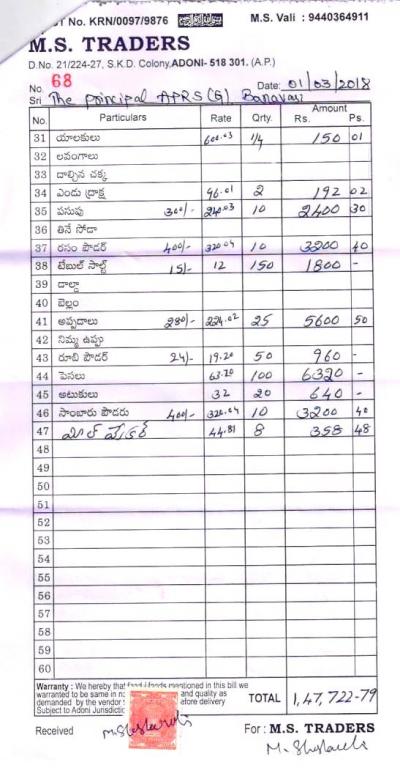 T No. KRN/0097/9876 M.S. Vali : 9440364911
M.S. TRADERS
D.No. 21/224-27, S.K.D. Colony, ADONI- 518 301. (A.P.)
No. 68 Date: 01/03/2018
Sri The principal APRS(G) Banavasi
No. Particulars Rate Qrty. Amount Rs. Ps.
31 యాలకులు 600.03 1/4 150 01
32 లవంగాలు
33 దాల్చిన చక్క
34 ఎండు ద్రాక్ష 96.01 2 192 02
35 పసుపు 300/- 240.03 10 2400 30
36 తినే సోడా
37 రసం పౌడర్ 400/- 320.04 10 3200 40
38 టేబుల్ సాల్ట్ 15/- 12 150 1800 -
39 దాల్డా
40 బెల్లం
41 అప్పడాలు 280/- 224.02 25 5600 50
42 నిమ్మ ఉప్పు
43 రూబి పౌడర్ 24/- 19.20 50 960 -
44 పెసలు 63.20 100 6320 -
45 అటుకులు 32 20 640 -
46 సాంబారు పౌడరు 400/- 320.04 10 3200 40
47 44.81 8 358 48
48
49
50
51
52
53
54
55
56
57
58
59
60
Warranty : We hereby that mentioned in this bill we
warranted to be same in and quality as
demanded by the vendor before delivery
Subject to Adoni Jurisdiction
TOTAL 1,47,722-79
Received For : M.S. TRADERS